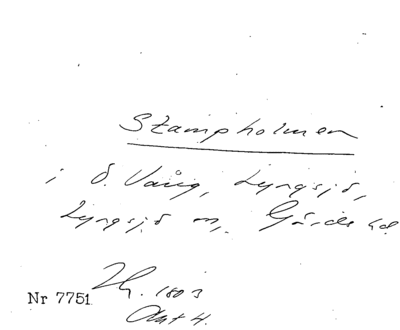 Stampholmen
i Ö. Vång, Lyngsjö,
Lyngsjö sn, Gärds hd
1803
Akt 4.
Nr 7751